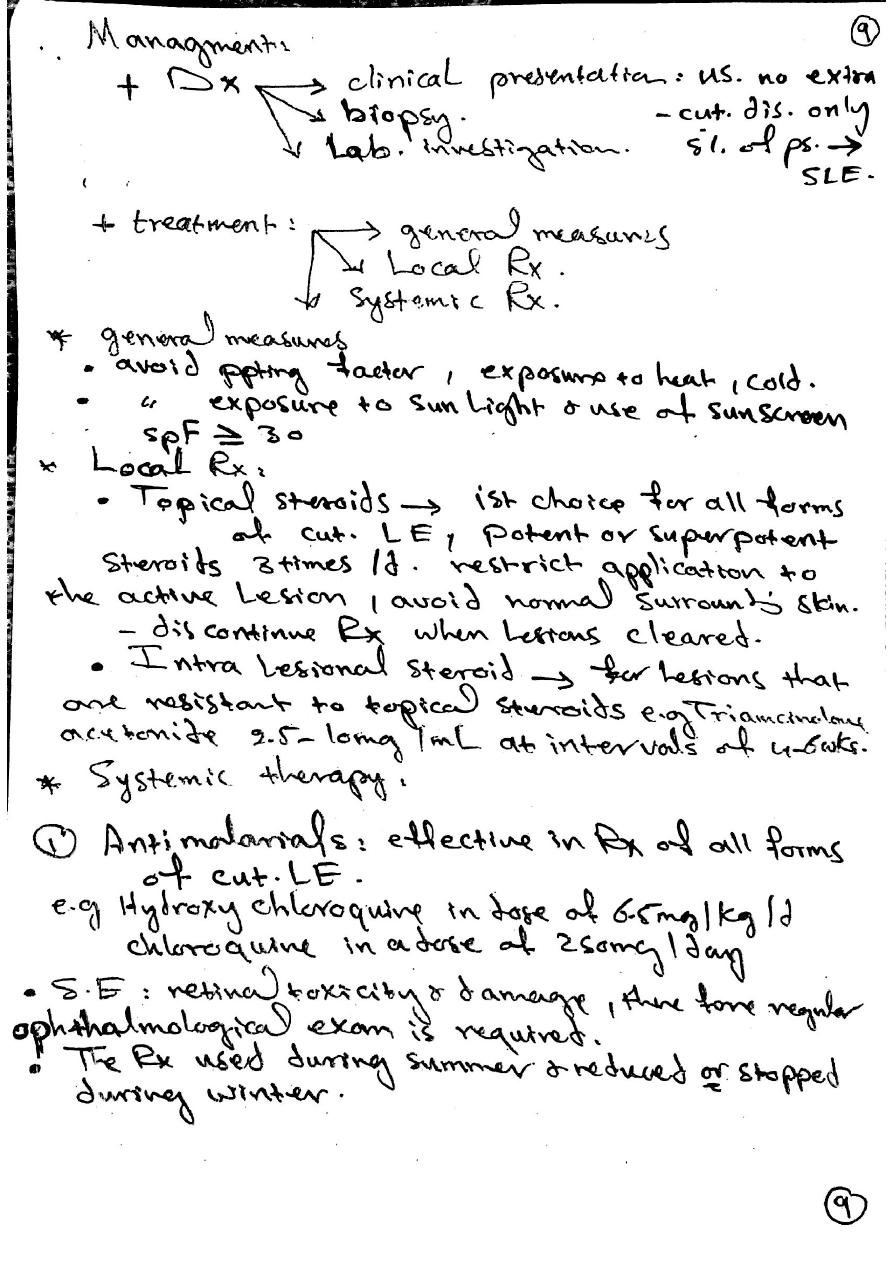 9
Managment:
+ Dx → clinical presentation: us. no extra
→ biopsy. - cut. dis. only
→ Lab. investigation. 5%. of ps. →
SLE.
+ treatment: → general measures
→ Local Rx.
→ Systemic Rx.
* general measures
• avoid ppting factor, exposure to heat, cold.
• " exposure to sun light & use of sunscreen
SPF ≥ 30
* Local Rx:
• Topical steroids → 1st choice for all forms
of cut. LE, potent or superpotent
Steroids 3 times /d. restrict application to
the active Lesion, avoid normal surround'g skin.
- discontinue Rx when Lesions cleared.
• Intra Lesional steroid → for Lesions that
are resistant to topical steroids e.g Triamcinolone
acetonide 2.5-10mg/mL at intervals of 4-6wks.
* Systemic therapy:
① Antimalarials: effective in Rx of all forms
of cut. LE.
e.g Hydroxy chloroquine in dose of 6.5mg/kg/d
chloroquine in a dose of 250mg/day
• S.E: retinal toxicity & damage, there fore regular
ophthalmological exam is required.
• The Rx used during summer & reduced or stopped
during winter.
9